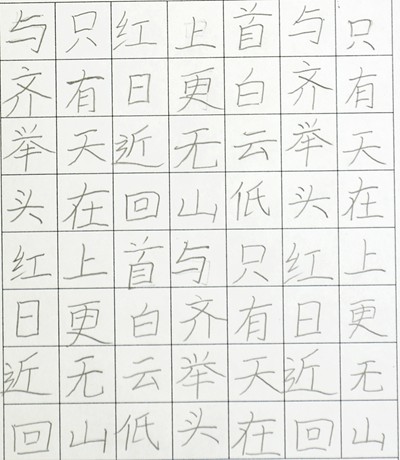 只有天在上更无山
与齐举头红日近回
首白云低只有天在
上更无山与齐举头
红日近回首白云低
只有天在上更无山
与齐举头红日近回